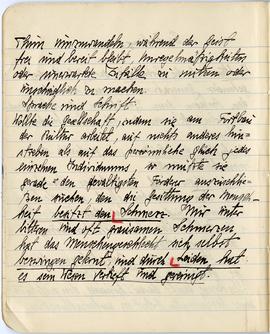 Tuns umzuwandeln, während der Geist
frei und bereit bleibt, Unregelmäßigkeiten
oder unerwartete Zufälle zu nützen oder
unschädlich zu machen.
Sprache und Schrift.
Wollte die Gesellschaft, indem sie am Fortbau
der Kultur arbeitet, auf nichts anderes hin-
streben als auf das Glück jedes
einzelnen Individuums, so müßte sie
gerade den gewaltigsten Förderer
den die Gesittung der Mensch-
heit besitzt den Schmerz. Nur unter
bittern und oft grausamen Schmerzen
hat das Menschengeschlecht sich selbst
bezwingen gelernt, und durch Leiden hat
es sein Wesen vertieft und gereinigt.